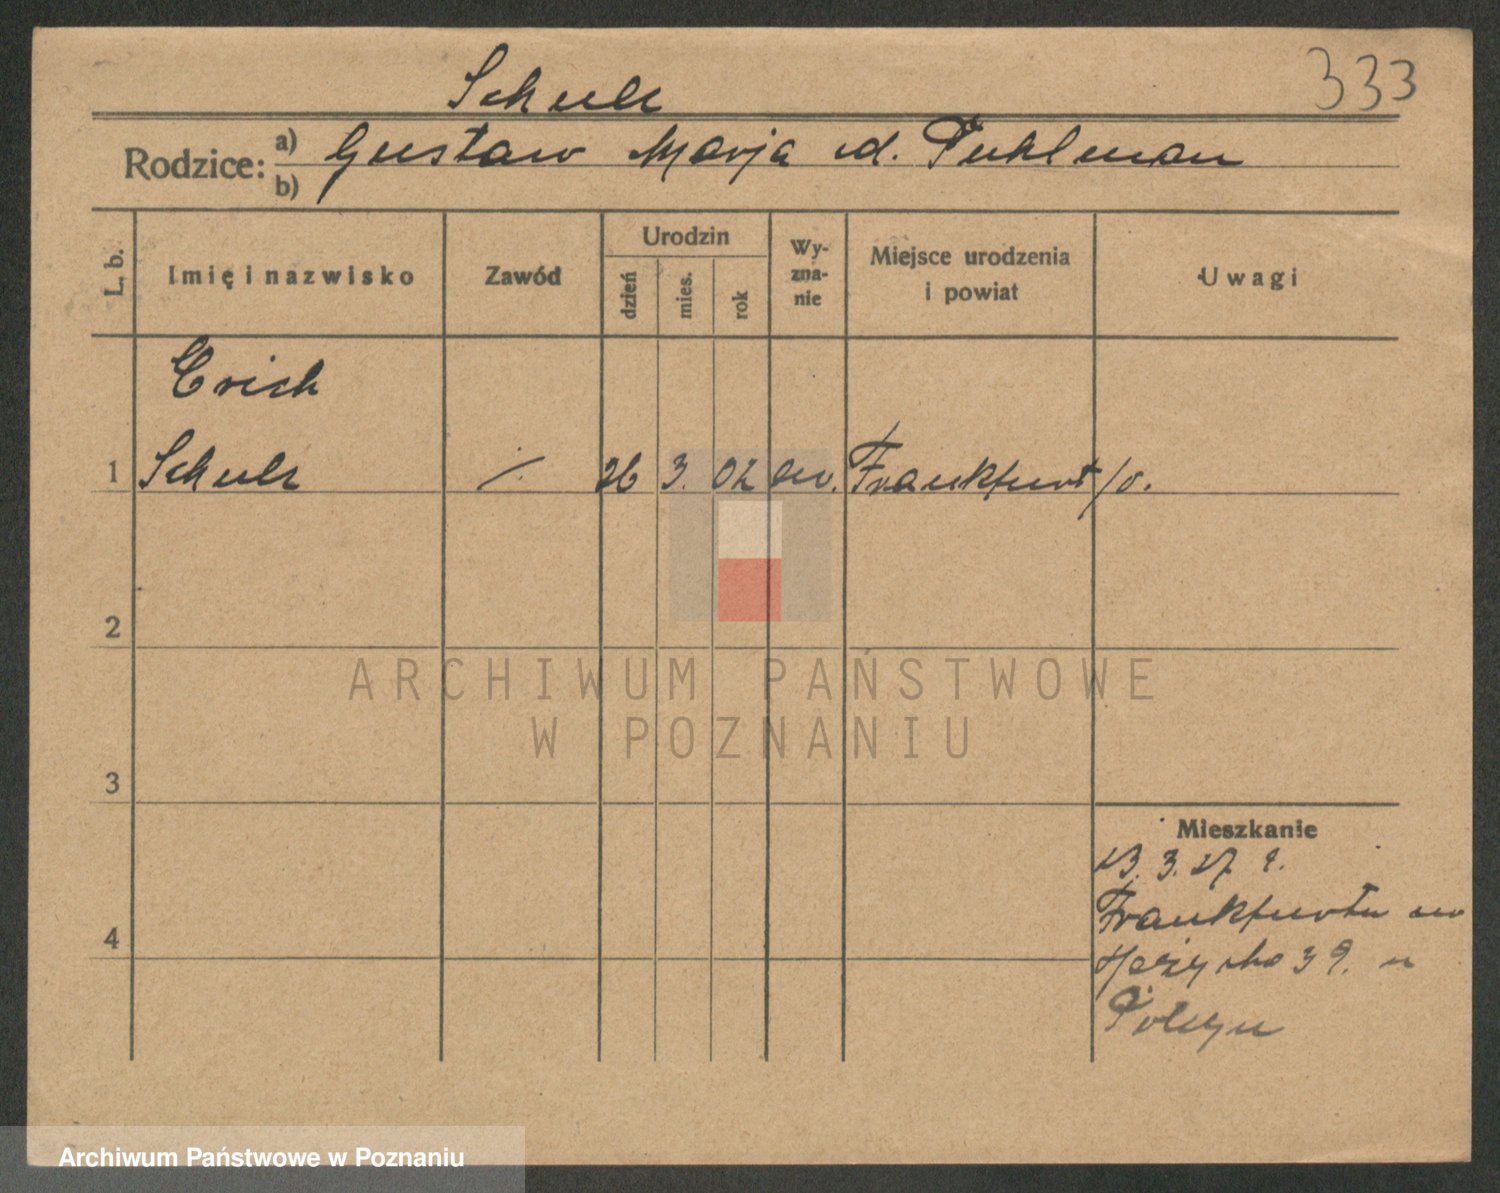 Schulz
333
Rodzice: a) Gustaw Marja
b)
L. b.
Imię i nazwisko
Zawód
Urodzin
dzień
mies.
rok
Wy-
zna-
nie
Miejsce urodzenia
i powiat
Uwagi
Erich
1 Schulz ·/. 26 3. 02 ew. Frankfurt/O.
2
3
4
Mieszkanie
3. 27
Frankfurtu
39. u
ARCHIWUM PAŃSTWOWE
W POZNANIU
Archiwum Państwowe w Poznaniu